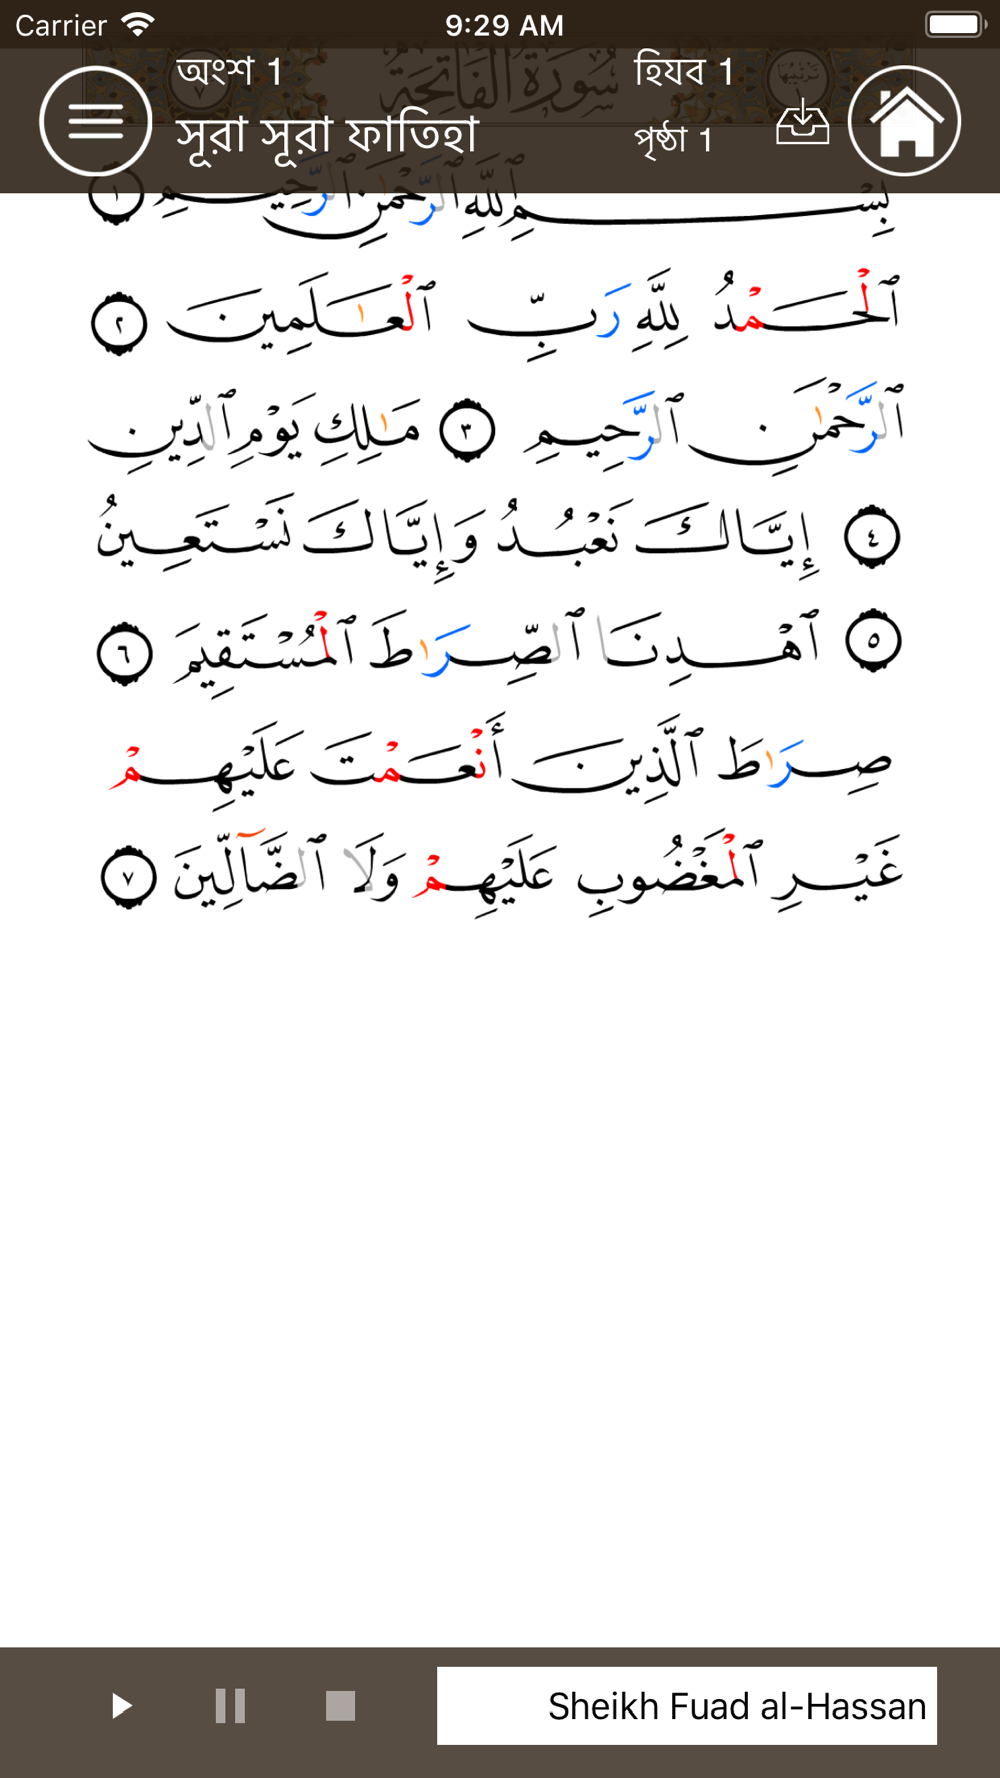 Carrier 9:29 AM
অংশ 1 হিযব 1
সূরা সূরা ফাতিহা পৃষ্ঠা 1
سُورَةُ ٱلْفَاتِحَةِ
بِسْمِ ٱللَّهِ ٱلرَّحْمَٰنِ ٱلرَّحِيمِ ١
ٱلْحَمْدُ لِلَّهِ رَبِّ ٱلْعَٰلَمِينَ ٢
ٱلرَّحْمَٰنِ ٱلرَّحِيمِ ٣ مَٰلِكِ يَوْمِ ٱلدِّينِ
٤ إِيَّاكَ نَعْبُدُ وَإِيَّاكَ نَسْتَعِينُ
٥ ٱهْدِنَا ٱلصِّرَٰطَ ٱلْمُسْتَقِيمَ ٦
صِرَٰطَ ٱلَّذِينَ أَنْعَمْتَ عَلَيْهِمْ
غَيْرِ ٱلْمَغْضُوبِ عَلَيْهِمْ وَلَا ٱلضَّآلِّينَ ٧
Sheikh Fuad al-Hassan